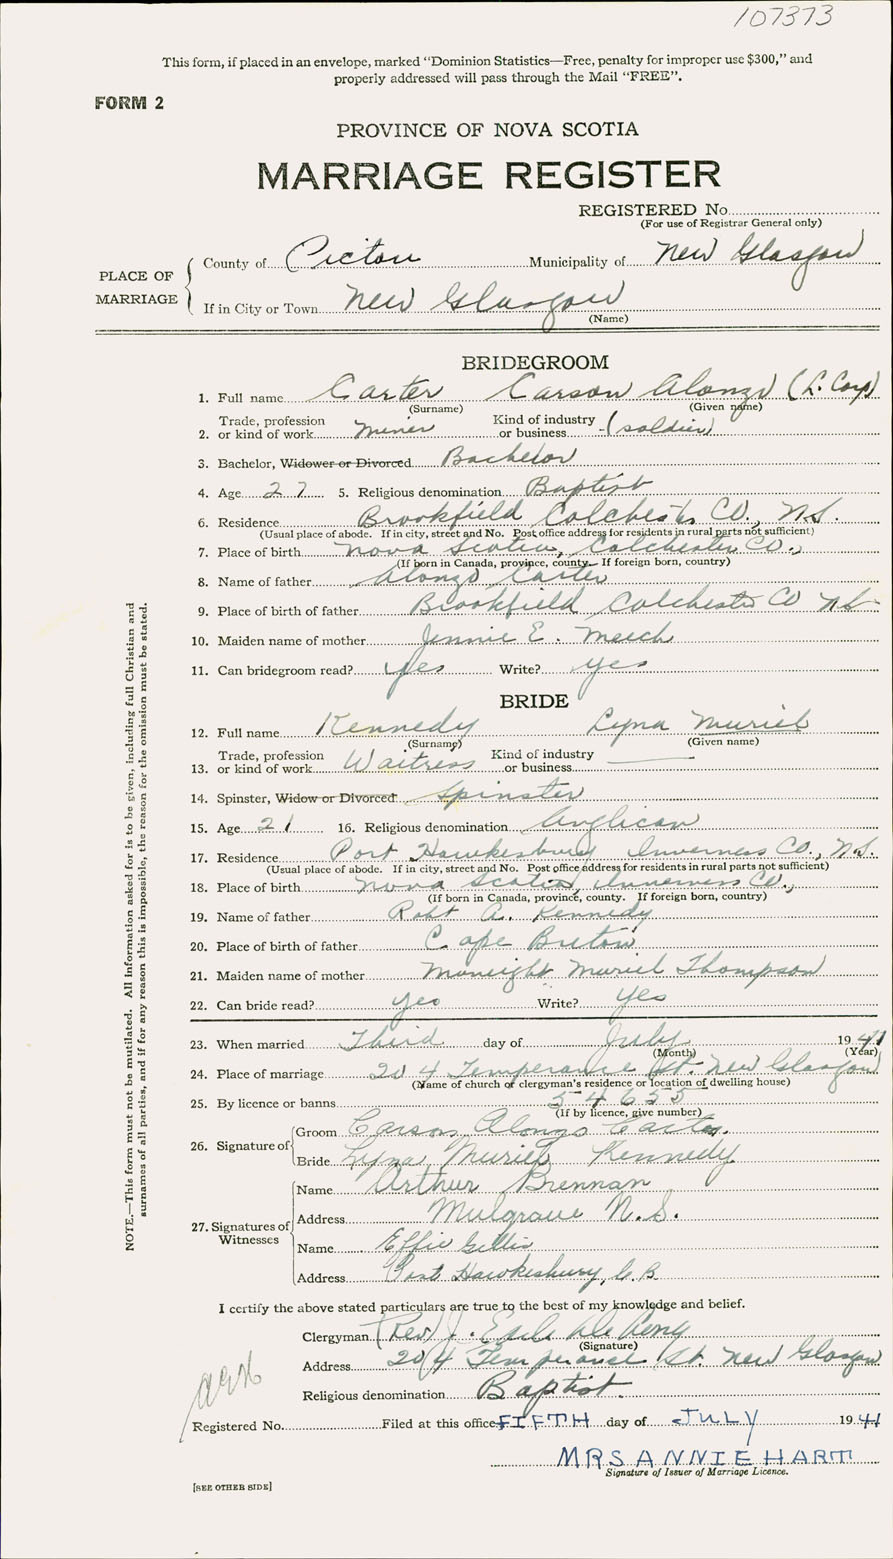 107373
This form, if placed in an envelope, marked “Dominion Statistics—Free, penalty for improper use $300,” and
properly addressed will pass through the Mail “FREE”.
FORM 2
PROVINCE OF NOVA SCOTIA
MARRIAGE REGISTER
REGISTERED No.
(For use of Registrar General only)
PLACE OF MARRIAGE
County of Pictou Municipality of New Glasgow
If in City or Town New Glasgow
(Name)
BRIDEGROOM
1. Full name Carter Carson Alonzo (L. Corp)
(Surname) (Given name)
2. Trade, profession or kind of work miner Kind of industry or business (soldier)
3. Bachelor, Widower or Divorced Bachelor
4. Age 27 5. Religious denomination Baptist
6. Residence Brookfield Colchester Co., N.S.
(Usual place of abode. If in city, street and No. Post office address for residents in rural parts not sufficient)
7. Place of birth Nova Scotia, Colchester Co.,
(If born in Canada, province, county. If foreign born, country)
8. Name of father Alonzo Carter
9. Place of birth of father Brookfield Colchester Co NS
10. Maiden name of mother Jennie E.
11. Can bridegroom read? yes Write? yes
BRIDE
12. Full name Kennedy Lyna Muriel
(Surname) (Given name)
13. Trade, profession or kind of work Waitress Kind of industry or business
14. Spinster, Widow or Divorced Spinster
15. Age 21 16. Religious denomination Anglican
17. Residence Port Hawkesbury Inverness Co., N.S.
(Usual place of abode. If in city, street and No. Post office address for residents in rural parts not sufficient)
18. Place of birth Nova Scotia, Inverness Co.,
(If born in Canada, province, county. If foreign born, country)
19. Name of father Robt A. Kennedy
20. Place of birth of father Cape Breton
21. Maiden name of mother Muriel Thompson
22. Can bride read? yes Write? yes
23. When married Third day of July 1941
(Month) (Year)
24. Place of marriage 204 Temperance St. New Glasgow
(Name of church or clergyman's residence or location of dwelling house)
25. By licence or banns 54655
(If by licence, give number)
26. Signature of
Groom Carson Alonzo Carter
Bride Lyna Muriel Kennedy
27. Signatures of Witnesses
Name Arthur Brennan
Address Mulgrave N.S.
Name Effie Gillis
Address Port Hawkesbury, C.B.
I certify the above stated particulars are true to the best of my knowledge and belief.
Clergyman (Rev) J.
(Signature)
Address 204 Temperance St. New Glasgow
Religious denomination Baptist
Registered No. Filed at this office FIFTH day of JULY 1941
MRS ANNIE HART
Signature of Issuer of Marriage Licence.
[SEE OTHER SIDE]
NOTE.—This form must not be mutilated. All Information asked for is to be given, including full Christian and
surnames of all parties, and if for any reason this is impossible, the reason for the omission must be stated.